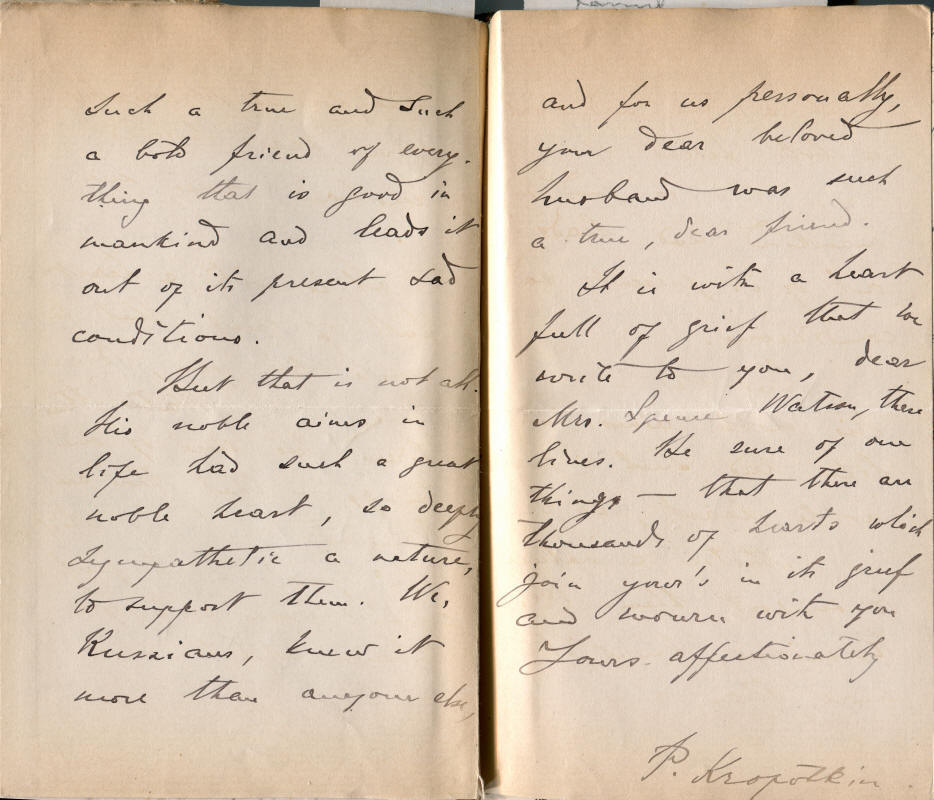 such a true and such
a bold friend of every-
thing that is good in
mankind and leads it
out of its present sad
conditions.
But that is not all.
His noble aims in
life had such a great
noble heart, so deeply
sympathetic a nature,
to support them. We,
Russians, knew it
more than anyone else,
and for us personally,
your dear beloved
husband was such
a true, dear friend.
It is with a heart
full of grief that we
write to you, dear
Mrs. Spence Watson, these
lines. Be sure of one
thing — that there are
thousands of hearts which
join your's in its grief
and mourn with you
Yours affectionately
P. Kropotkin